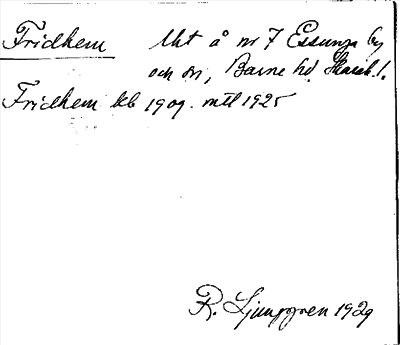 Fridhem Lht å nr 7 Essunga by
och sn, Barne hd. Skarab. l.
Fridhem kb 1909. mtl 1925
R. Ljunggren 1929